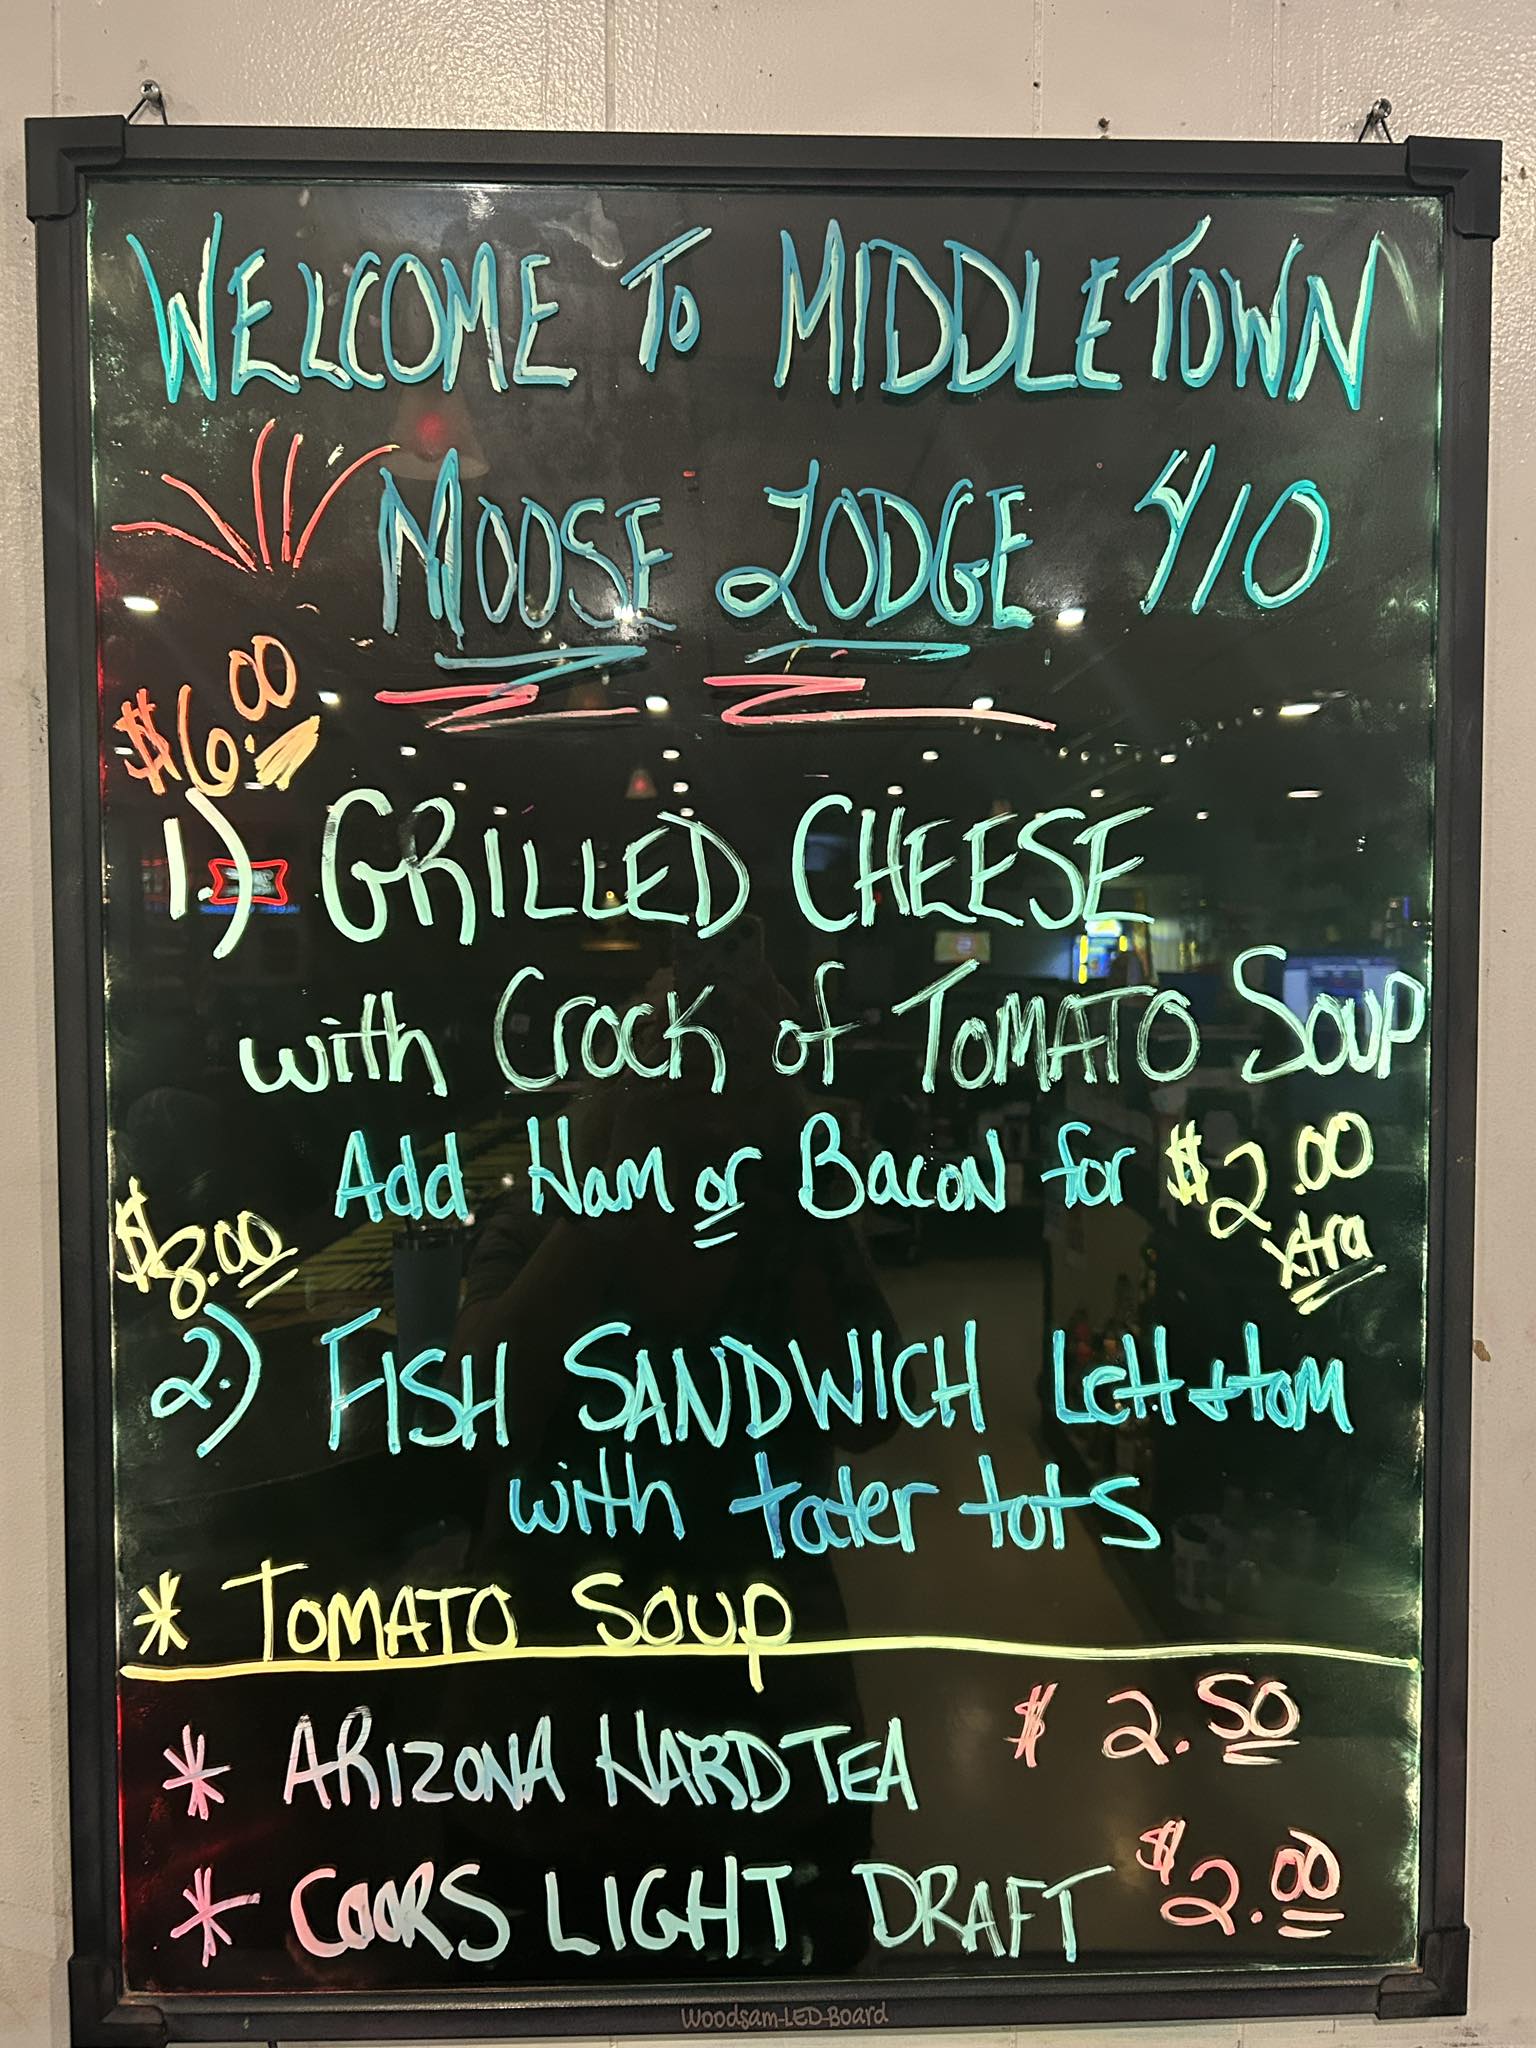 WELCOME TO MIDDLETOWN
MOOSE LODGE 410
$6.00
1.) GRILLED CHEESE
with Crock of TOMATO SOUP
Add Ham or Bacon for $2.00
xtra
$8.00
2.) FISH SANDWICH Lett + tom
with tater tots
* TOMATO SOUP
* ARIZONA HARD TEA $2.50
* COORS LIGHT DRAFT $2.00
Woodsam-LED-Board